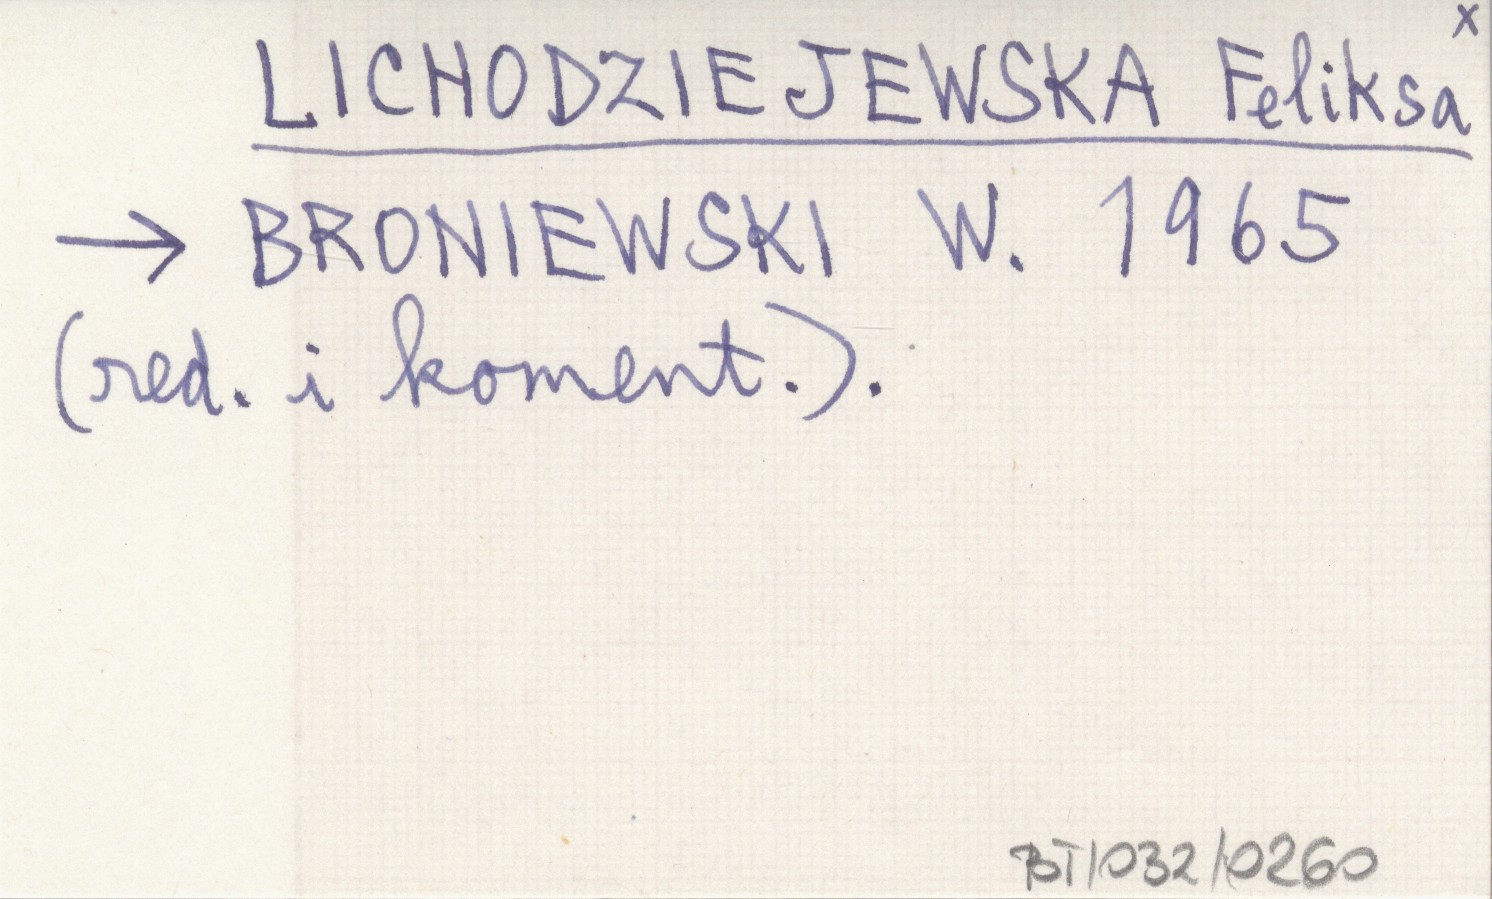 x
LICHODZIEJEWSKA Feliksa
→ BRONIEWSKI W. 1965
(red. i koment.).
BT/032/0260